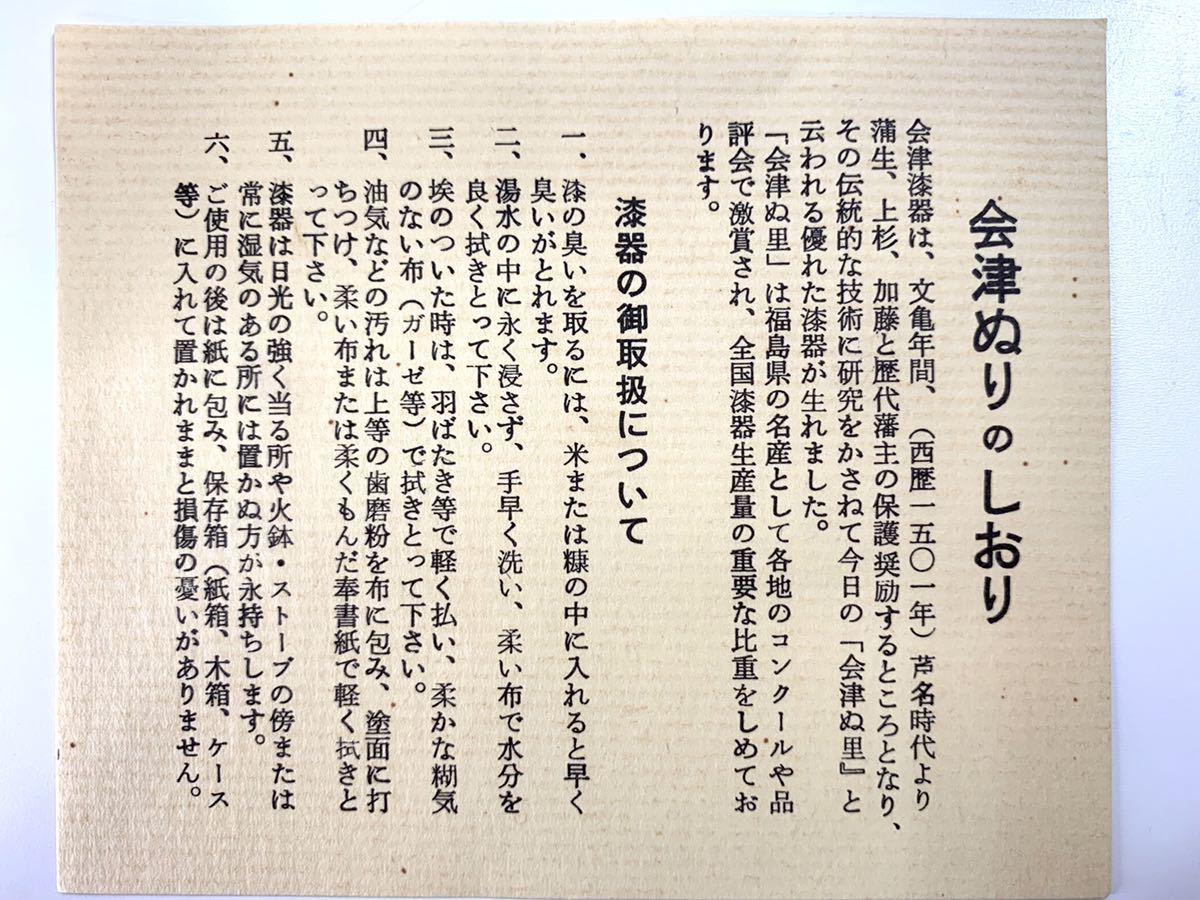 会津ぬりのしおり
会津漆器は、文亀年間、（西歴一五〇一年）芦名時代より
蒲生、上杉、加藤と歴代藩主の保護奨励するところとなり、
その伝統的な技術に研究をかさねて今日の「会津ぬ里』と
云われる優れた漆器が生れました。
「会津ぬ里」は福島県の名産として各地のコンクールや品
評会で激賞され、全国漆器生産量の重要な比重をしめてお
ります。
漆器の御取扱について
一、漆の臭いを取るには、米または糠の中に入れると早く
臭いがとれます。
二、湯水の中に永く浸さず、手早く洗い、柔い布で水分を
良く拭きとって下さい。
三、埃のついた時は、羽ばたき等で軽く払い、柔かな糊気
のない布（ガーゼ等）で拭きとって下さい。
四、油気などの汚れは上等の歯磨粉を布に包み、塗面に打
ちつけ、柔い布または柔くもんだ奉書紙で軽く拭きと
って下さい。
五、漆器は日光の強く当る所や火鉢・ストーブの傍または
常に湿気のある所には置かぬ方が永持ちします。
六、ご使用の後は紙に包み、保存箱（紙箱、木箱、ケース
等）に入れて置かれままと損傷の憂いがありません。